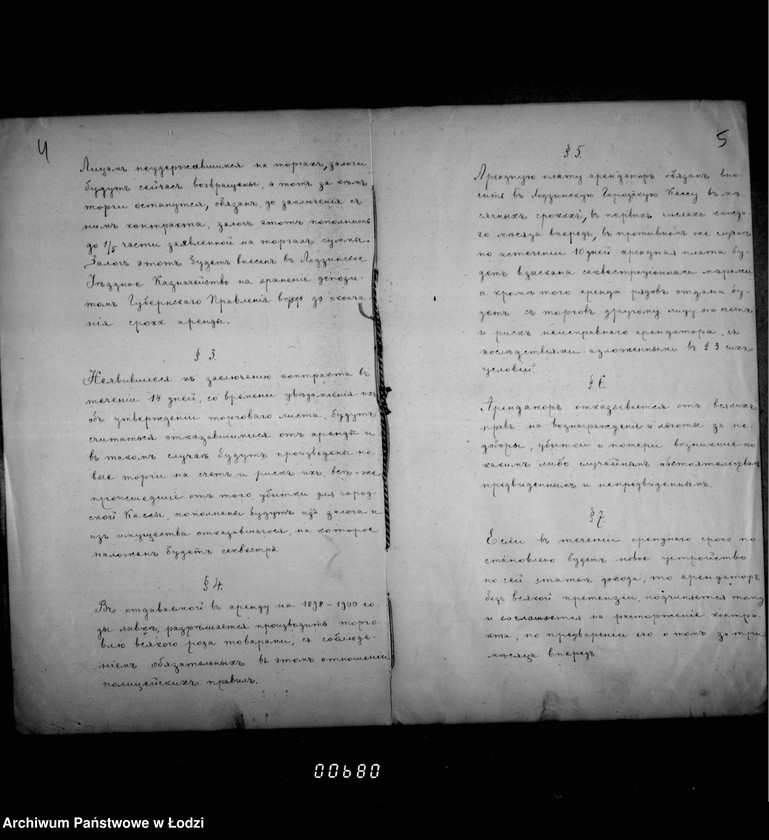 4
Лицамъ неудержавшимся на торгахъ, залоги
будутъ сейчасъ возвращены, а тотъ за кѣмъ
торги останутся, обязанъ, до заключенія съ
нимъ контракта, залогъ этотъ пополнить
до 1/5 части заявленной на торгахъ суммы.
Залогъ этотъ будетъ внесенъ въ Лодзинское
Уѣздное Казначейство на храненіе депози-
томъ Губернскаго Правленія впредь до оконча-
нія срока аренды.
§ 3.
Неявившіеся къ заключенію контракта въ
теченіи 14 дней, со времени увѣдомленія ихъ
объ утвержденіи торговаго листа, будутъ
считаться отказавшимися отъ аренды и
въ такомъ случаѣ будутъ произведены но-
вые торги на счетъ и рискъ ихъ, всѣ-же
происшедшіе отъ того убытки для город-
ской Кассы, пополнены будутъ изъ залога и
изъ имущества отказавшагося, на которое
наложенъ будетъ секвестръ.
§ 4.
Въ отдаваемой въ аренду на 1898-1900 го-
ды лавкѣ, разрѣшается производить торго-
влю всякаго рода товарами, съ соблюде-
ніемъ обязательныхъ въ этомъ отношеніи
полицейскихъ правилъ.
5
§ 5.
Арендную плату арендаторъ обязанъ вно-
сить въ Лодзинскую Городскую Кассу въ мѣ-
сячныхъ срокахъ, въ первыхъ числахъ каждо-
го мѣсяца впередъ, въ противномъ же случаѣ
по истеченіи 10 дней арендная плата бу-
детъ взыскана секвестраціонными мѣрами
а кромѣ того аренда рядовъ отдана бу-
детъ съ торговъ другому лицу на счетъ
и рискъ неисправнаго арендатора, съ
послѣдствіями изложенными въ § 3 сихъ
условій.
§ 6.
Арендаторъ отказывается отъ всякихъ
правъ на вознагражденіе и льготы за не-
доборы, убытки и потери возникшіе по
какимъ либо случайнымъ обстоятельствамъ
предвидѣннымъ и непредвидѣннымъ.
§ 7.
Если въ теченіи аренднаго срока по-
становлено будетъ новое устройство
по сей статьѣ дохода, то арендаторъ
безъ всякой претензіи, подчиняется тому
и соглашается на расторженіе контра-
кта, по предвареніи его о томъ за три
мѣсяца впередъ.
00680
Archiwum Państwowe w Łodzi